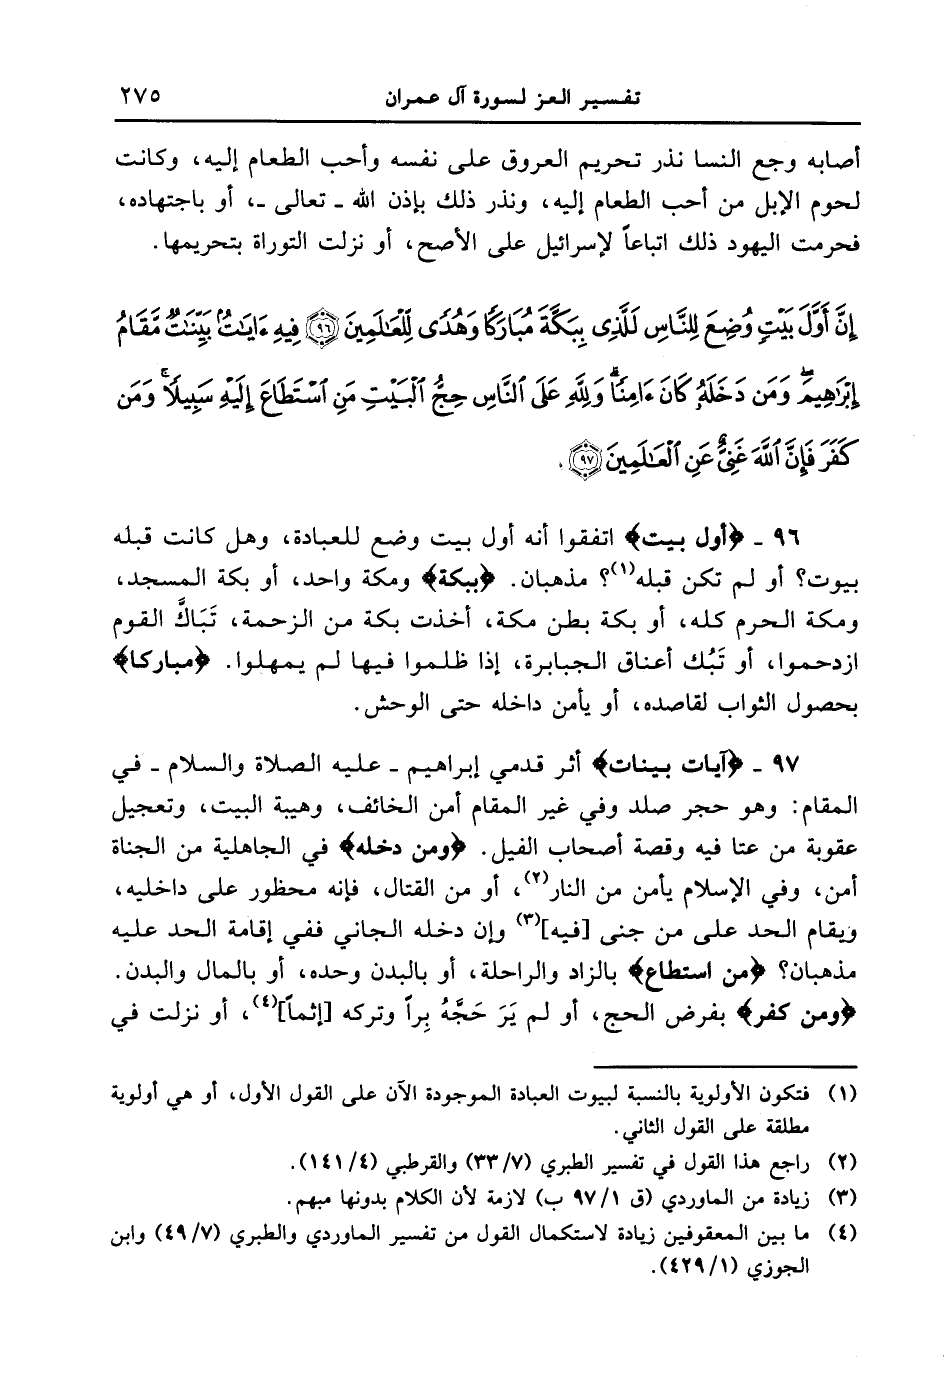 تفسير العز لسورة آل عمران ٢٧٥
أصابه وجع النسا نذر تحريم العروق على نفسه وأحب الطعام إليه، وكانت
لحوم الإبل من أحب الطعام إليه، ونذر ذلك بإذن الله ـ تعالى ـ، أو باجتهاده،
فحرمت اليهود ذلك اتباعاً لإسرائيل على الأصح، أو نزلت التوراة بتحريمها.
إِنَّ أَوَّلَ بَيْتٍ وُضِعَ لِلنَّاسِ لَلَّذِى بِبَكَّةَ مُبَارَكًا وَهُدًى لِّلْعَـٰلَمِينَ ﴿٩٦﴾ فِيهِ ءَايَـٰتٌۢ بَيِّنَـٰتٌ مَّقَامُ
إِبْرَٰهِيمَۖ وَمَن دَخَلَهُۥ كَانَ ءَامِنًاۗ وَلِلَّهِ عَلَى ٱلنَّاسِ حِجُّ ٱلْبَيْتِ مَنِ ٱسْتَطَاعَ إِلَيْهِ سَبِيلًاۚ وَمَن
كَفَرَ فَإِنَّ ٱللَّهَ غَنِىٌّ عَنِ ٱلْعَـٰلَمِينَ ﴿٩٧﴾.
٩٦ ـ ﴿أول بيت﴾ اتفقوا أنه أول بيت وضع للعبادة، وهل كانت قبله
بيوت؟ أو لم تكن قبله(١)؟ مذهبان. ﴿ببكة﴾ ومكة واحد، أو بكة المسجد،
ومكة الحرم كله، أو بكة بطن مكة، أخذت بكة من الزحمة، تَبَاكَّ القوم
ازدحموا، أو تَبُك أعناق الجبابرة، إذا ظلموا فيها لم يمهلوا. ﴿مباركا﴾
بحصول الثواب لقاصده، أو يأمن داخله حتى الوحش.
٩٧ ـ ﴿آيات بينات﴾ أثر قدمي إبراهيم ـ عليه الصلاة والسلام ـ في
المقام: وهو حجر صلد وفي غير المقام أمن الخائف، وهيبة البيت، وتعجيل
عقوبة من عتا فيه وقصة أصحاب الفيل. ﴿ومن دخله﴾ في الجاهلية من الجناة
أمن، وفي الإسلام يأمن من النار(٢)، أو من القتال، فإنه محظور على داخليه،
ويقام الحد على من جنى [فيه](٣) وإن دخله الجاني ففي إقامة الحد عليه
مذهبان؟ ﴿من استطاع﴾ بالزاد والراحلة، أو بالبدن وحده، أو بالمال والبدن.
﴿ومن كفر﴾ بفرض الحج، أو لم يَرَ حَجَّهُ بِراً وتركه [إثماً](٤)، أو نزلت في
(١) فتكون الأولوية بالنسبة لبيوت العبادة الموجودة الآن على القول الأول، أو هي أولوية
مطلقة على القول الثاني.
(٢) راجع هذا القول في تفسير الطبري (٣٣/٧) والقرطبي (١٤١/٤).
(٣) زيادة من الماوردي (ق ٩٧/١ ب) لازمة لأن الكلام بدونها مبهم.
(٤) ما بين المعقوفين زيادة لاستكمال القول من تفسير الماوردي والطبري (٤٩/٧) وابن
الجوزي (٤٢٩/١).